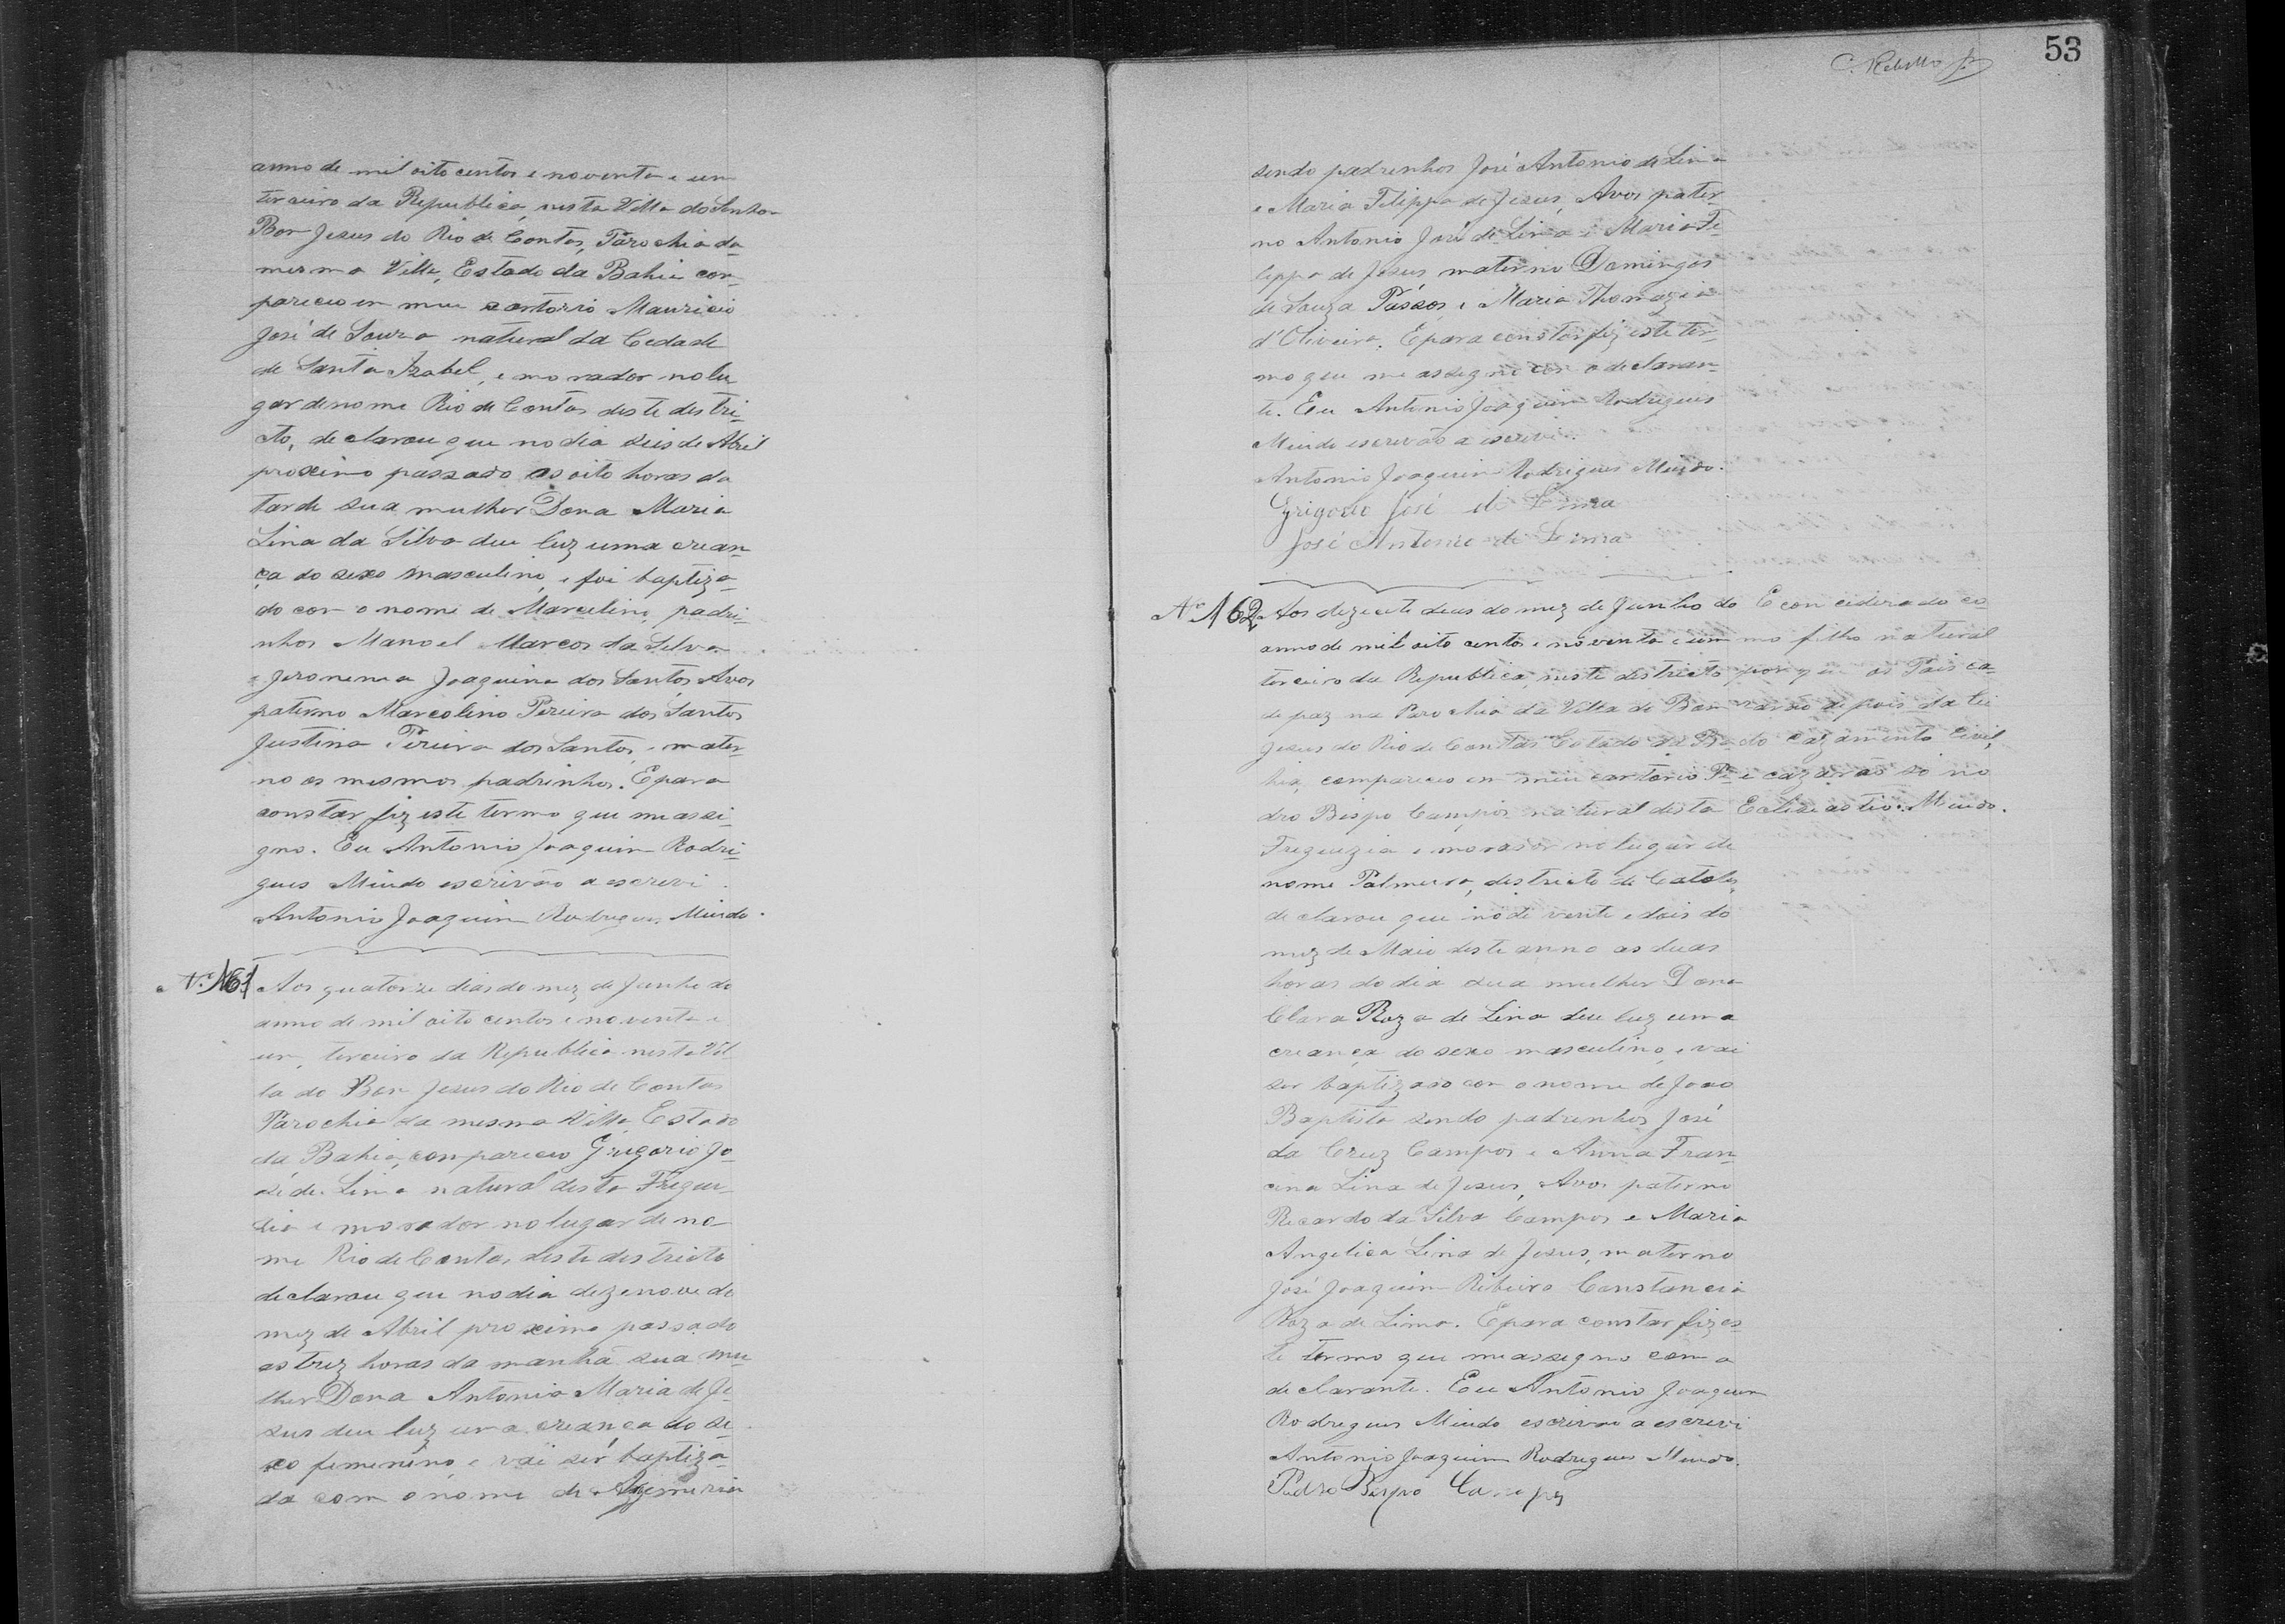 anno de mil oito centos e noventa e um
terceiro da Republica, nesta Villa do Senhor
Bom Jesus do Rio de Contas, Parochia da
mesma Villa, Estado da Bahia com-
pareceo em meu cartorio Mauricio
José de Souza natural da Cedade
de Santa Izabel, e morador no lu
gar de nome Rio de Contas deste destri-
cto, declarou que no dia seis de Abril
proximo passado as oito horas da
tarde sua mulher Dona Maria
Lina da Silva deu luz uma crean-
ça do sexo masculino, e foi baptiza-
do com o nome de Marculino, padri-
nhos Manoel Marcos da Silva
e Jeronima Joaquina dos Santos, Avos
paterno Marcolino Pereira dos Santos
Justina Pereira dos Santos, e mater
no os mesmos padrinhos. E para
constar fiz este termo que me assi-
gno. Eu Antonio Joaquim Rodri-
gues Miudo escrivão a escrevi.
Antonio Joaquim Rodrigues Miudo.
Nº 161 Aos quatorze dias do mez de Junho do
anno de mil oito centos e noventa e
um, terceiro da Republica nesta Vil
la do Bom Jesus do Rio de Contas
Parochia da mesma Villa, Estado
da Bahia, compareceo Grigorio Jo-
sé de Lima natural desta Fregue-
sia e morador no lugar de no-
me Rio de Contas deste destricto
declarou que no dia dezenove do
mez de Abril proximo passado
as trez horas da manhã sua mu-
lher Dona Antonia Maria de Je-
sus deu luz uma creança do se-
xo femenino, e vai ser baptiza-
da com o nome de
53
sendo padrinhos José Antonio de Lima
e Maria Filippa de Jesus, Avos pater-
no Antonio José de Lima e Maria Fe-
lippa de Jesus materno Domingos
de Souza Passos, e Maria Thomazia
d'Oliveira. E para constar fiz este ter-
mo que me assegno com o declaran-
te. Eu Antonio Joaquim Rodrigues
Miudo escrivão a escrevi.
Antonio Joaquim Rodrigues Miudo.
Grigorio José de Lima
José Antonio de Lima
Nº 162 Aos dezesete dias do mez de Junho do
anno de mil oito centos e noventa e um
terceiro da Republica, neste destricto
de paz na Parochia da Villa de Bom
Jesus do Rio de Contas Estado da Ba-
hia, compareceo em meu cartorio Pe-
dro Bispo Campos natural desta
Freguezia e morador no lugar de
nome Palmeira, destricto de Catoles
declarou que no di vente e dois do
mez de Maio deste anno as duas
horas do dia sua mulher Dona
Clara Roza de Lima deu luz uma
creança do sexo masculino, e vai
ser baptizado com o nome de Joao
Baptista sendo padrinhos José
da Cruz Campos e Anna Fran-
cina Lina de Jesus, Avos paterno
Ricardo da Silva Campos e Maria
Angelica Lina de Jesus, materno
José Joaquim Ribeiro Constancia
Roza de Lima. E para constar fiz es-
te termo que me assegno com o
declarante. Eu Antonio Joaquim
Rodrigues Miudo escrivao a escrevi
Antonio Joaquim Rodrigues Miudo.
Pedro Bispo Campos
E conciderado co-
mo filho natural
porque os Pais ca-
zarão depois da lei
do cazamento Civil,
e cazarão só no
Eclisiastico. Miudo.